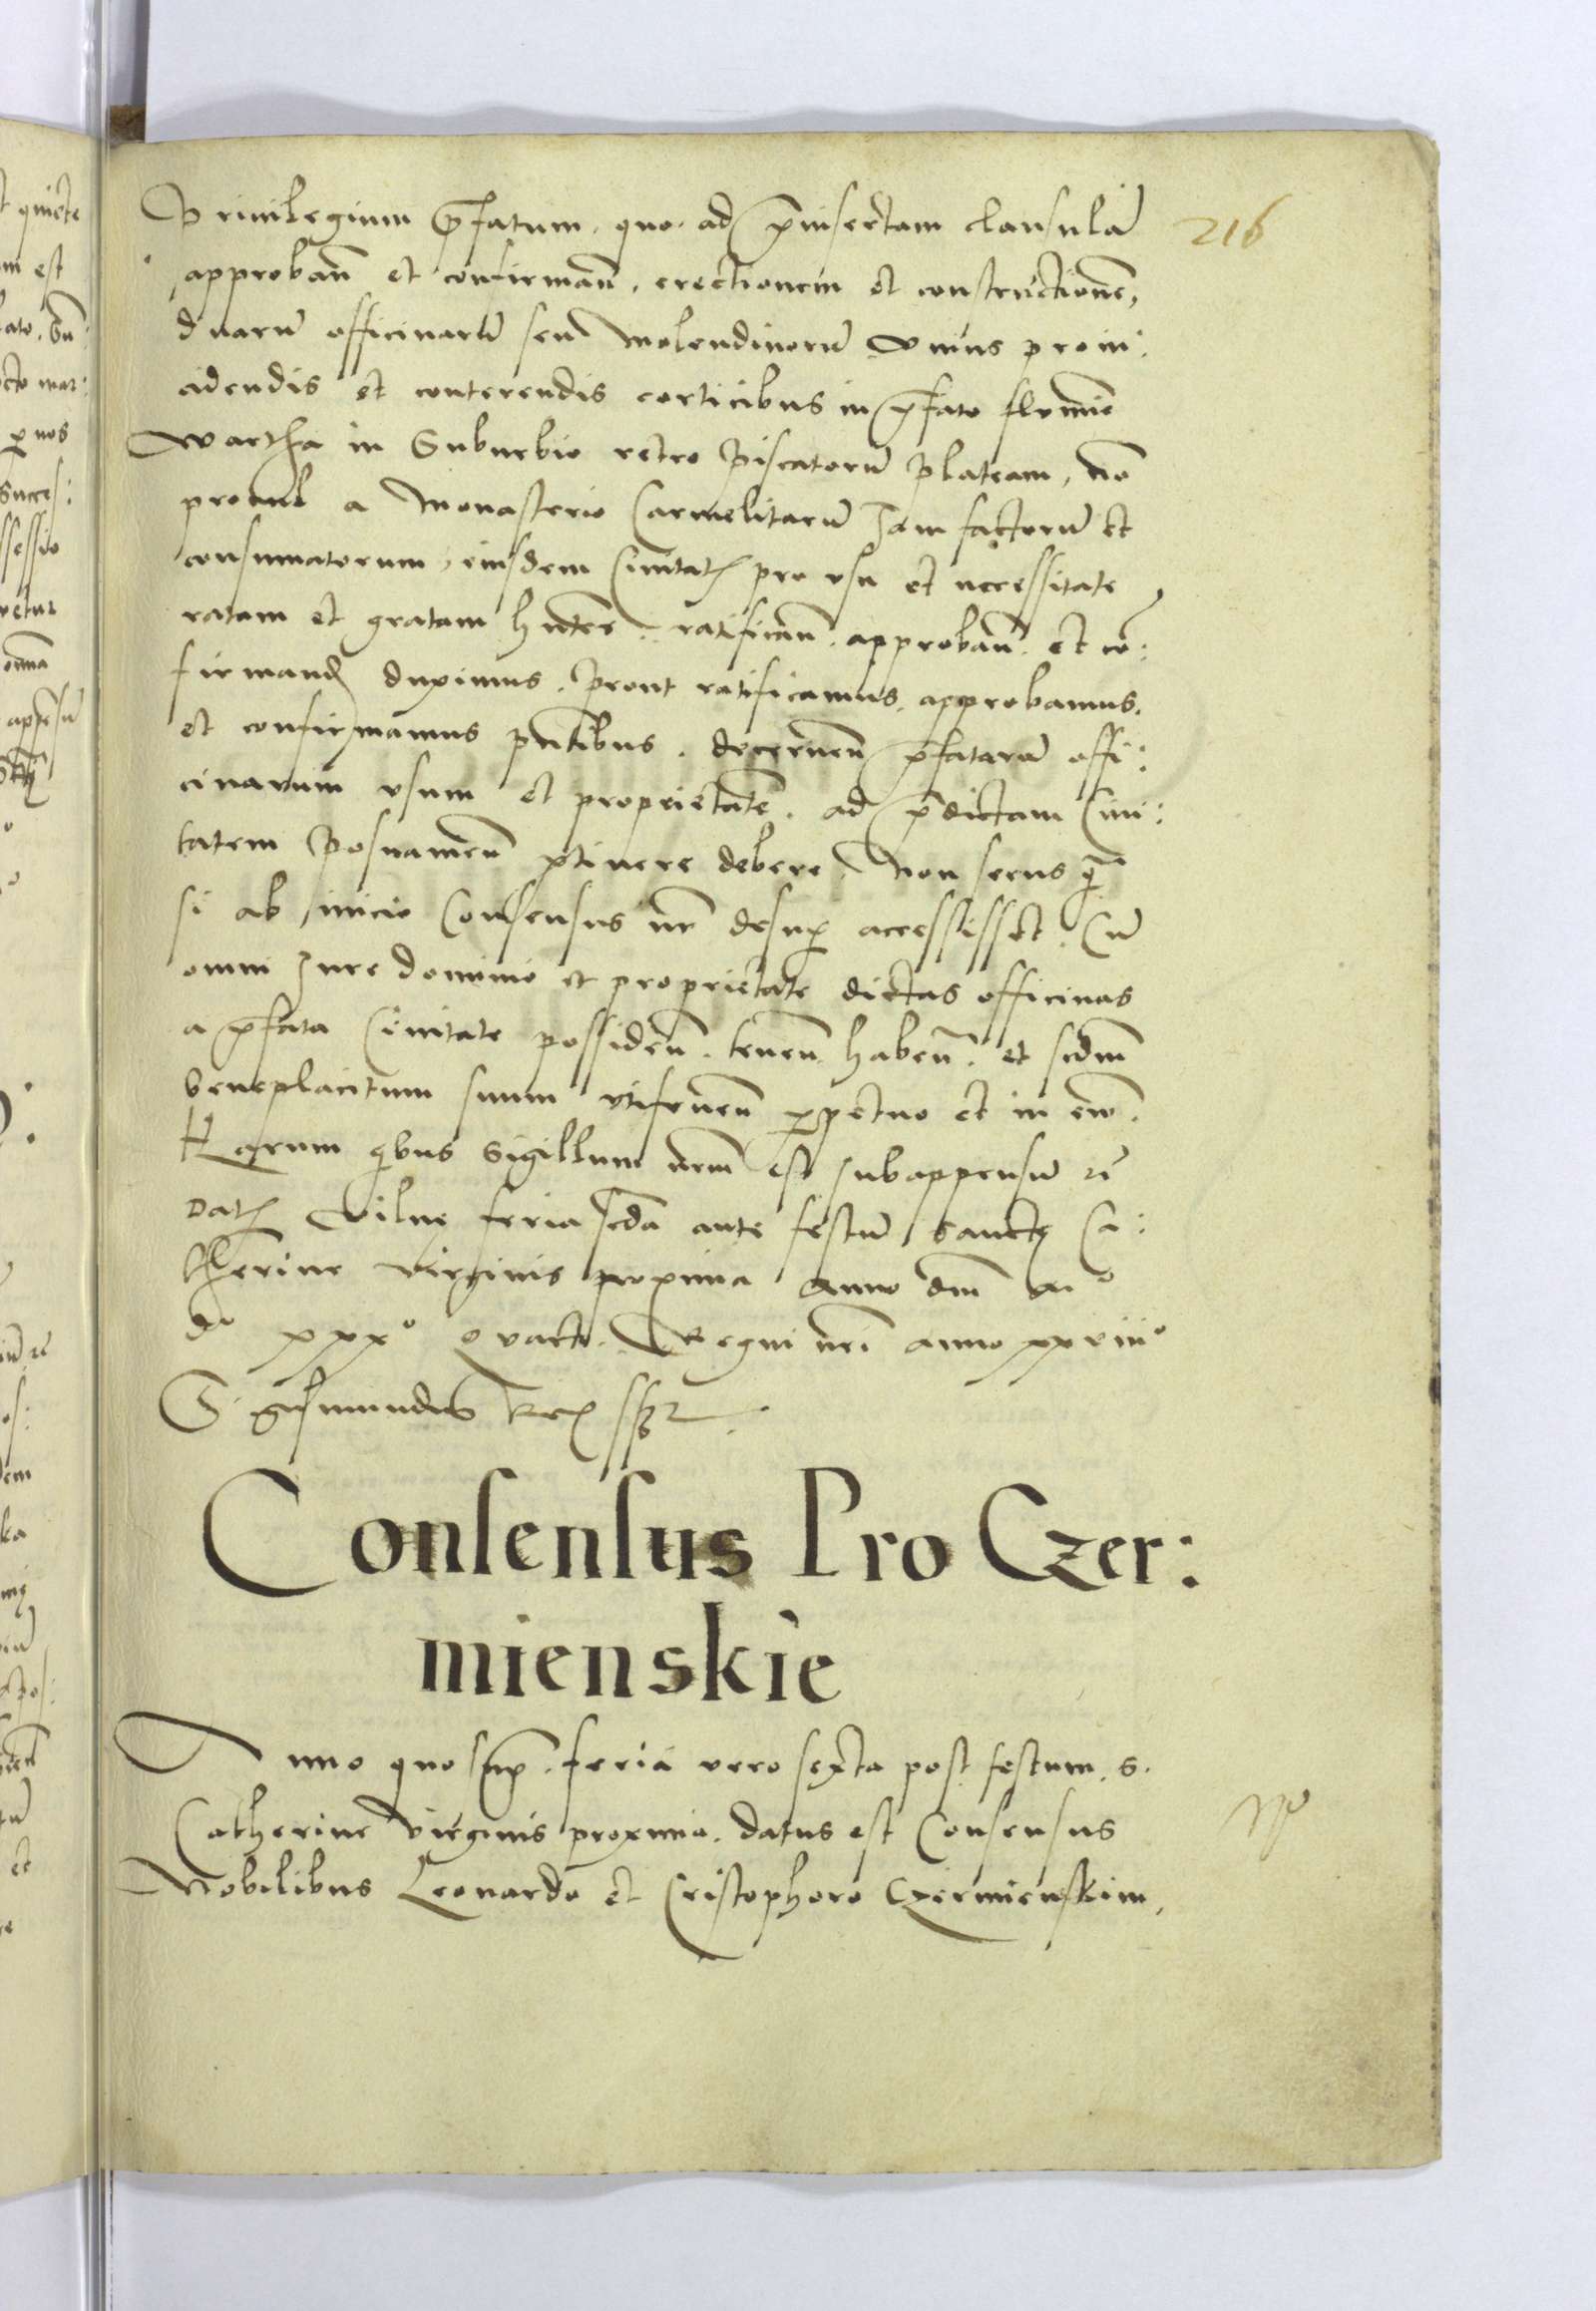 Priuilegium p̄fatum. quo. ad p̄insertam clausulā 216
approbań et confirmań. erectionem et constructionē,
duarū officinarū seu Molendinorū vnius pro in:
cidendis et conterendis corticibus in p̄fato flumīe
Wartha in Suburbio retro Piscatorū plateam, nō
procul a Monasterio Carmelitarū Iam factorū et
consumatorum, eiusdem Ciuitatꝭ pro vsu et necessitate
ratam et gratam hn̄tes. ratificań. approbań. et cō:
firmand duximus. Prout ratificamus. approbamus.
et confirmamus pn̄tibus. decerneń p̄fatarū offi:
cinarum vsum et proprietatē. ad p̄dictam Ciui:
tatem Posnanień ꝑtinere debere. Non secus q̄
si ab inicio Consensus nr̄ desuꝑ accessisset. Cū
omni Iure dominio et proprietate dictas officinas
a p̄fata Ciuitate possideń. teneń habeń. et scdm̄
beneplacitum suum vtifrueń ꝑpetuo et in euō.
Harum q̄bus Sigillum nrm̄ est subappensū rē
Datꝭ Vilne feria scd̄a ante festū Sanctę Ca:
therine virginis proxima Anno dnī Mº
Dº xxxº Quarto. Regni nrī anno xxviiiº
Sigismundus Rex sst
Consensus Pro Czer:
mienskie
Anno quo supꝭ. feria vero sexta post festum. S.
Catherine virginis proxima. datus est Consensus
Nobilibus Leonardo et Cristophoro Czermienskim,